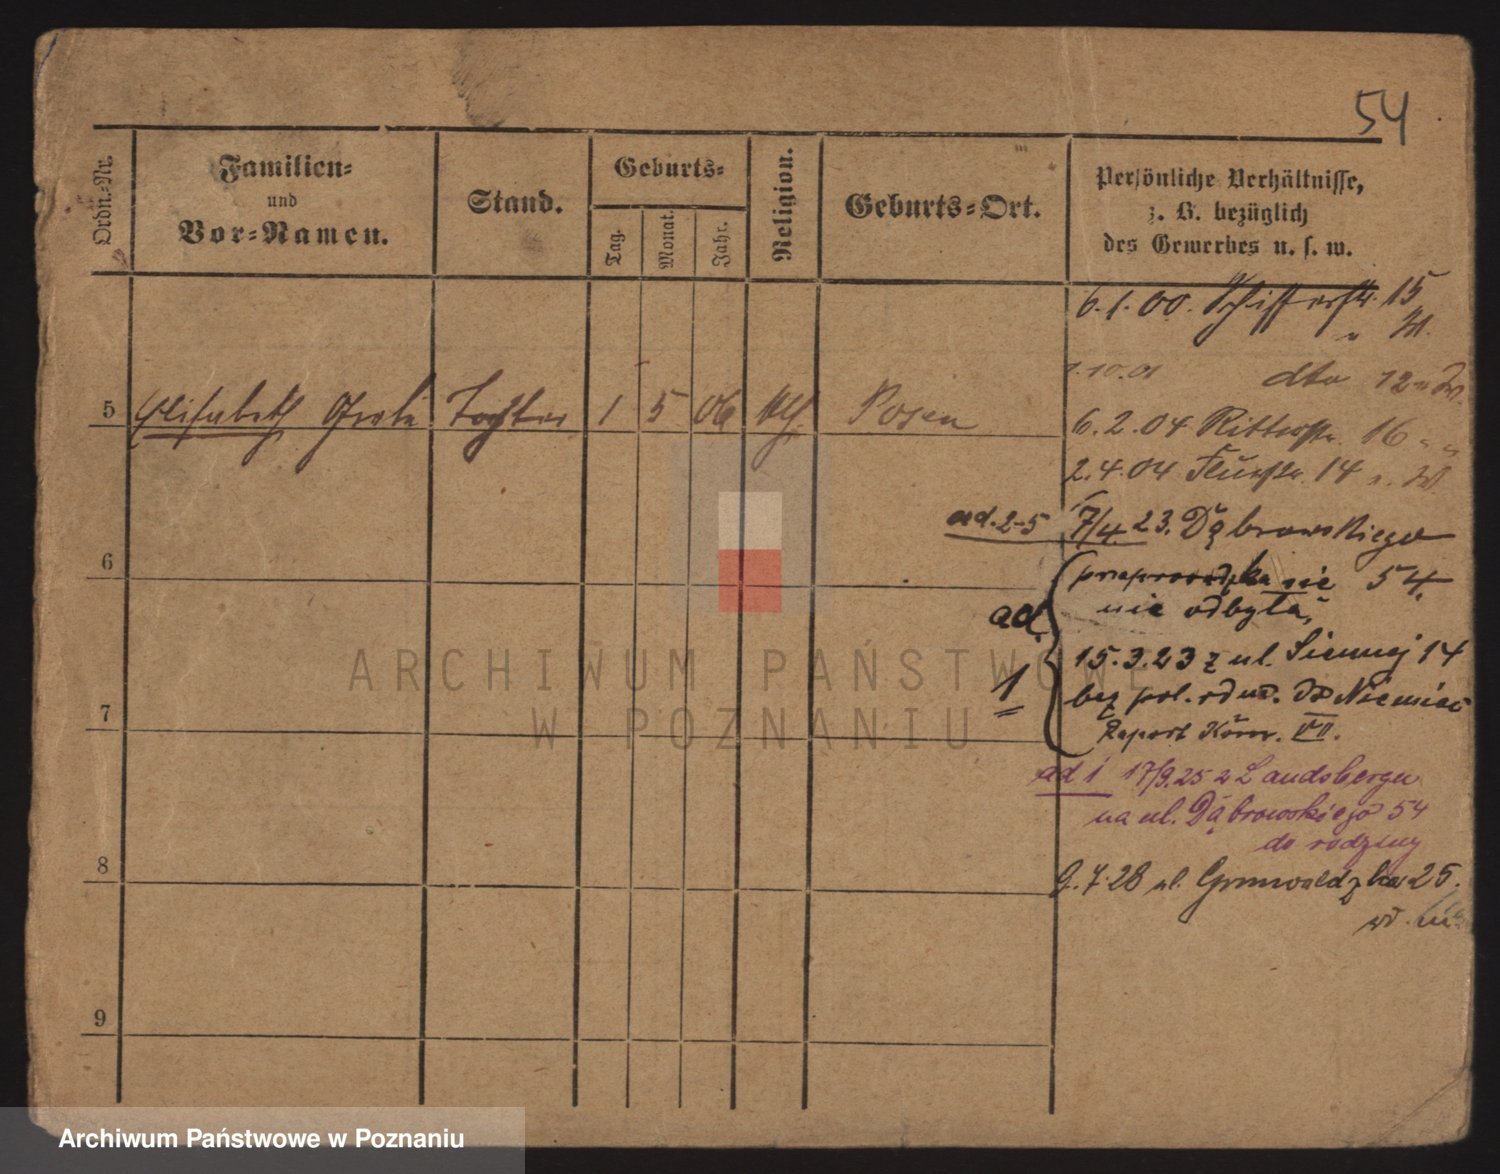 54
Ordn.-Nr.
Familien-
und
Vor-Namen.
Stand.
Geburts-
Tag.
Monat.
Jahr.
Religion.
Geburts-Ort.
Persönliche Verhältnisse,
z. B. bezüglich
des Gewerbes u. s. w.
6.1.00. Schifferstr. 15
1.10.01 dto 12
5 Elisabeth Tochter 1 5 06 Posen
6.2.04 Ritterstr. 16 " "
2.4.04 14
ad. 2-5 7/4 23. Dąbrowskiego
54.
6
ad 1
przeprowadzka nie
nie odbyła,
15.3.23 z ul. Siennej 14
bez pol. odm. do Niemiec
Raport Kom. VII.
7
ad 1 17/9.25 z Landsbergu
na ul. Dąbrowskiego 54
do rodziny
8
9.7.28 ul. Grunwaldzka 25.
9
ARCHIWUM PAŃSTWOWE
W POZNANIU
Archiwum Państwowe w Poznaniu